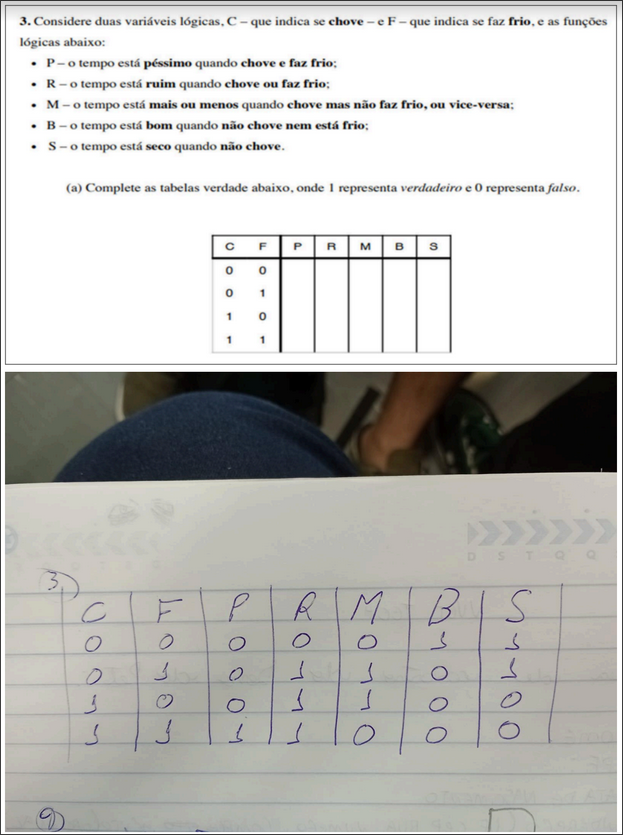 3. Considere duas variáveis lógicas, C – que indica se chove – e F – que indica se faz frio, e as funções
lógicas abaixo:
• P – o tempo está péssimo quando chove e faz frio;
• R – o tempo está ruim quando chove ou faz frio;
• M – o tempo está mais ou menos quando chove mas não faz frio, ou vice-versa;
• B – o tempo está bom quando não chove nem está frio;
• S – o tempo está seco quando não chove.
(a) Complete as tabelas verdade abaixo, onde 1 representa verdadeiro e 0 representa falso.
C F P R M B S
0 0
0 1
1 0
1 1
D S T Q Q
3)
C F P R M B S
0 0 0 0 0 1 1
0 1 0 1 1 0 1
1 0 0 1 1 0 0
1 1 1 1 0 0 0